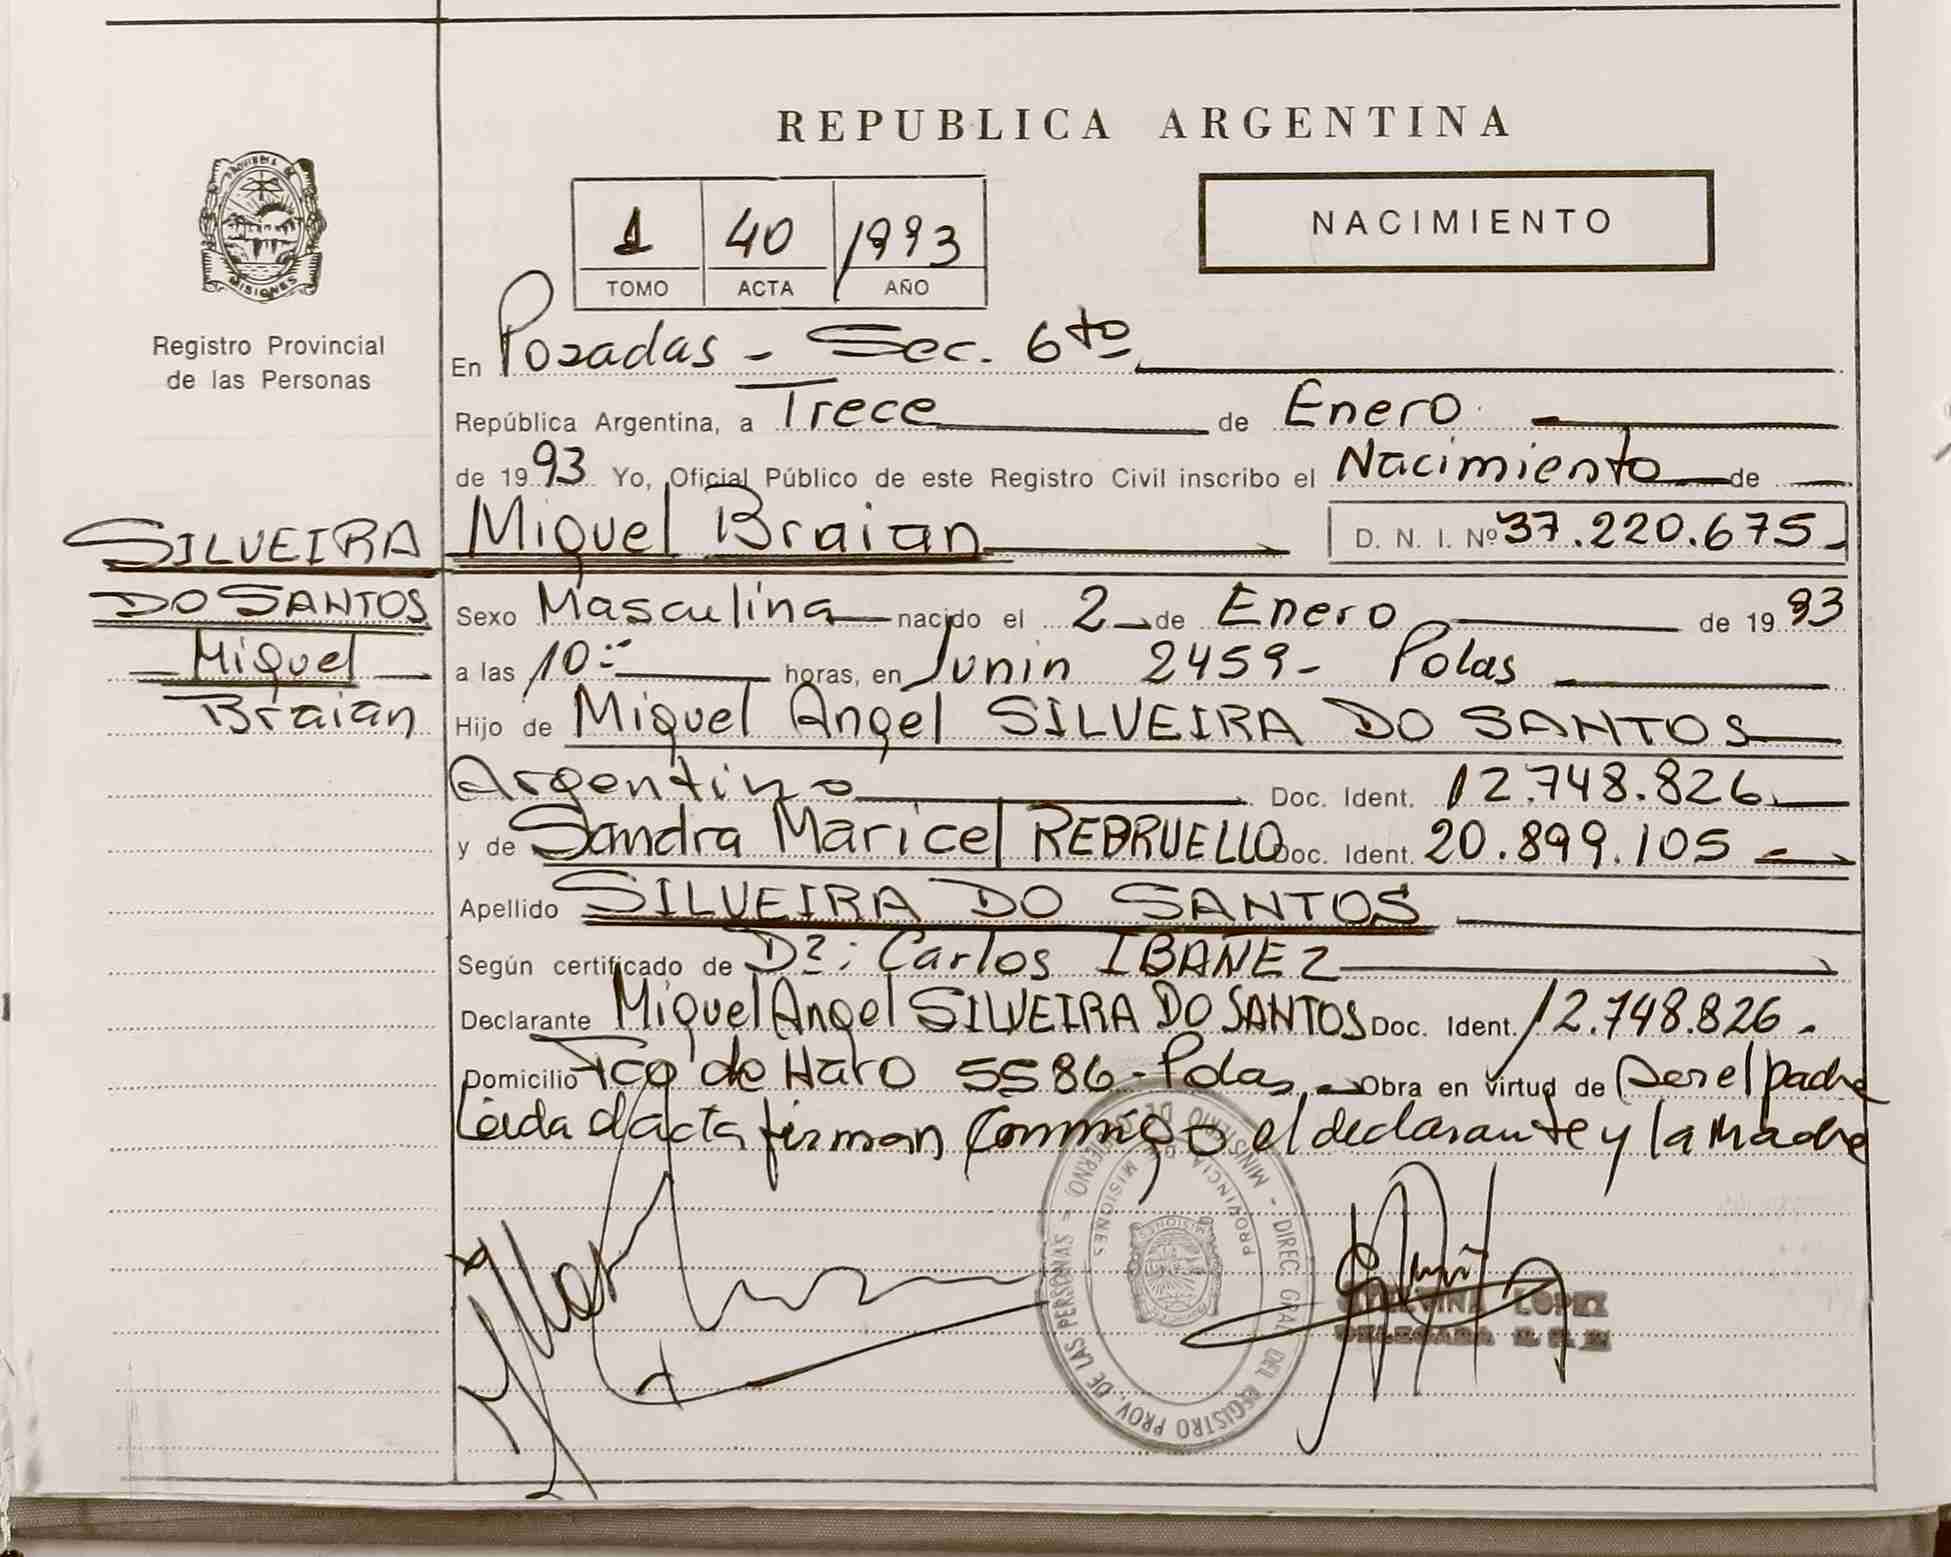 REPUBLICA ARGENTINA
NACIMIENTO
1 40 1993
TOMO ACTA AÑO
Registro Provincial
de las Personas
MISIONES
En Posadas - Sec. 6to
República Argentina, a Trece de Enero
de 1993 Yo, Oficial Público de este Registro Civil inscribo el Nacimiento de
SILVEIRA
DO SANTOS
Miguel
Braian
Miguel Braian D. N. I. Nº 37.220.675
Sexo Masculina nacido el 2 de Enero de 1993
a las 10:- horas, en Junin 2459 - Pdas
Hijo de Miguel Angel SILVEIRA DO SANTOS
Argentino Doc. Ident. 12.748.826
y de Sandra Maricel REBRUELLO Doc. Ident. 20.899.105 -
Apellido SILVEIRA DO SANTOS
Según certificado de Dr: Carlos IBAÑEZ
Declarante Miguel Angel SILVEIRA DO SANTOS Doc. Ident. 12.748.826 -
Domicilio Fco de Haro 5586 - Pdas Obra en virtud de ser el padre
Leida el acta firman conmigo el declarante y la Madre
MINISTERIO DE GOBIERNO - DIREC. GRAL. DEL REGISTRO PROV. DE LAS PERSONAS -
PROVINCIA DE MISIONES
LOPEZ
DELEGADA